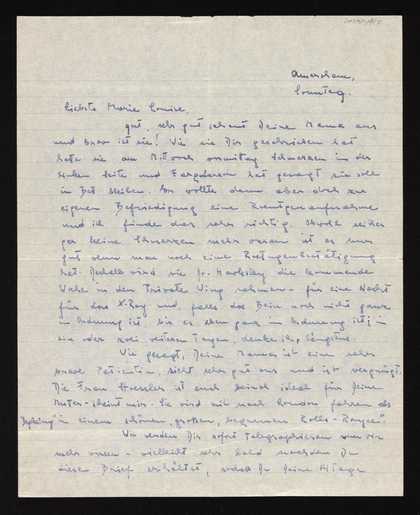 Amersham,
Sonntag.
Liebste Marie Louise,
gut, sehr gut schaut Deine Mama aus
und brav ist sie! Wie sie Dir geschrieben hat
hatte sie am Mittwoch vormittag Schmerzen in der
Seite und hat gesagt sie soll
im Bett bleiben. wollte dann aber doch zur
eigenen Befriedigung eine Röntgenaufnahme
und ich finde das sehr richtig. Obwohl seither
gar keine Schmerzen mehr waren ist es
gut wenn man noch eine Röntgenbestätigung
hat. Deshalb wird sie die kommende
Woche in den Private Wing nehmen - für eine Nacht
für das X-Ray und, falls das Bein noch nicht ganz
in Ordnung ist bis es eben ganz in Ordnung ist, in
ein oder zwei weiteren Tagen, denke ich, längstens.
Wie gesagt, Deine Mama ist eine sehr
brave Patientin, sieht sehr gut aus und ist vergnügt.
Die Frau ist auch ideal für Deine
Mutter - scheint mir. Sie wird mit nach London fahren
in einem schönen, großen, bequemen Rolls-Royce!
Wir werden Dir sofort telegraphieren wenn wir
mehr wissen - vielleicht sehr bald nachdem Du
diesen Brief erhältst, sodaß Du Deine